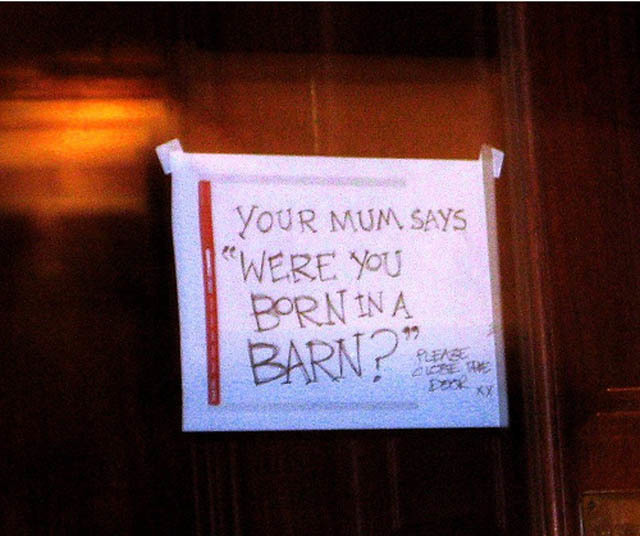 YOUR MUM SAYS
"WERE YOU
BORN IN A
BARN?"
PLEASE
CLOSE THE
DOOR XX